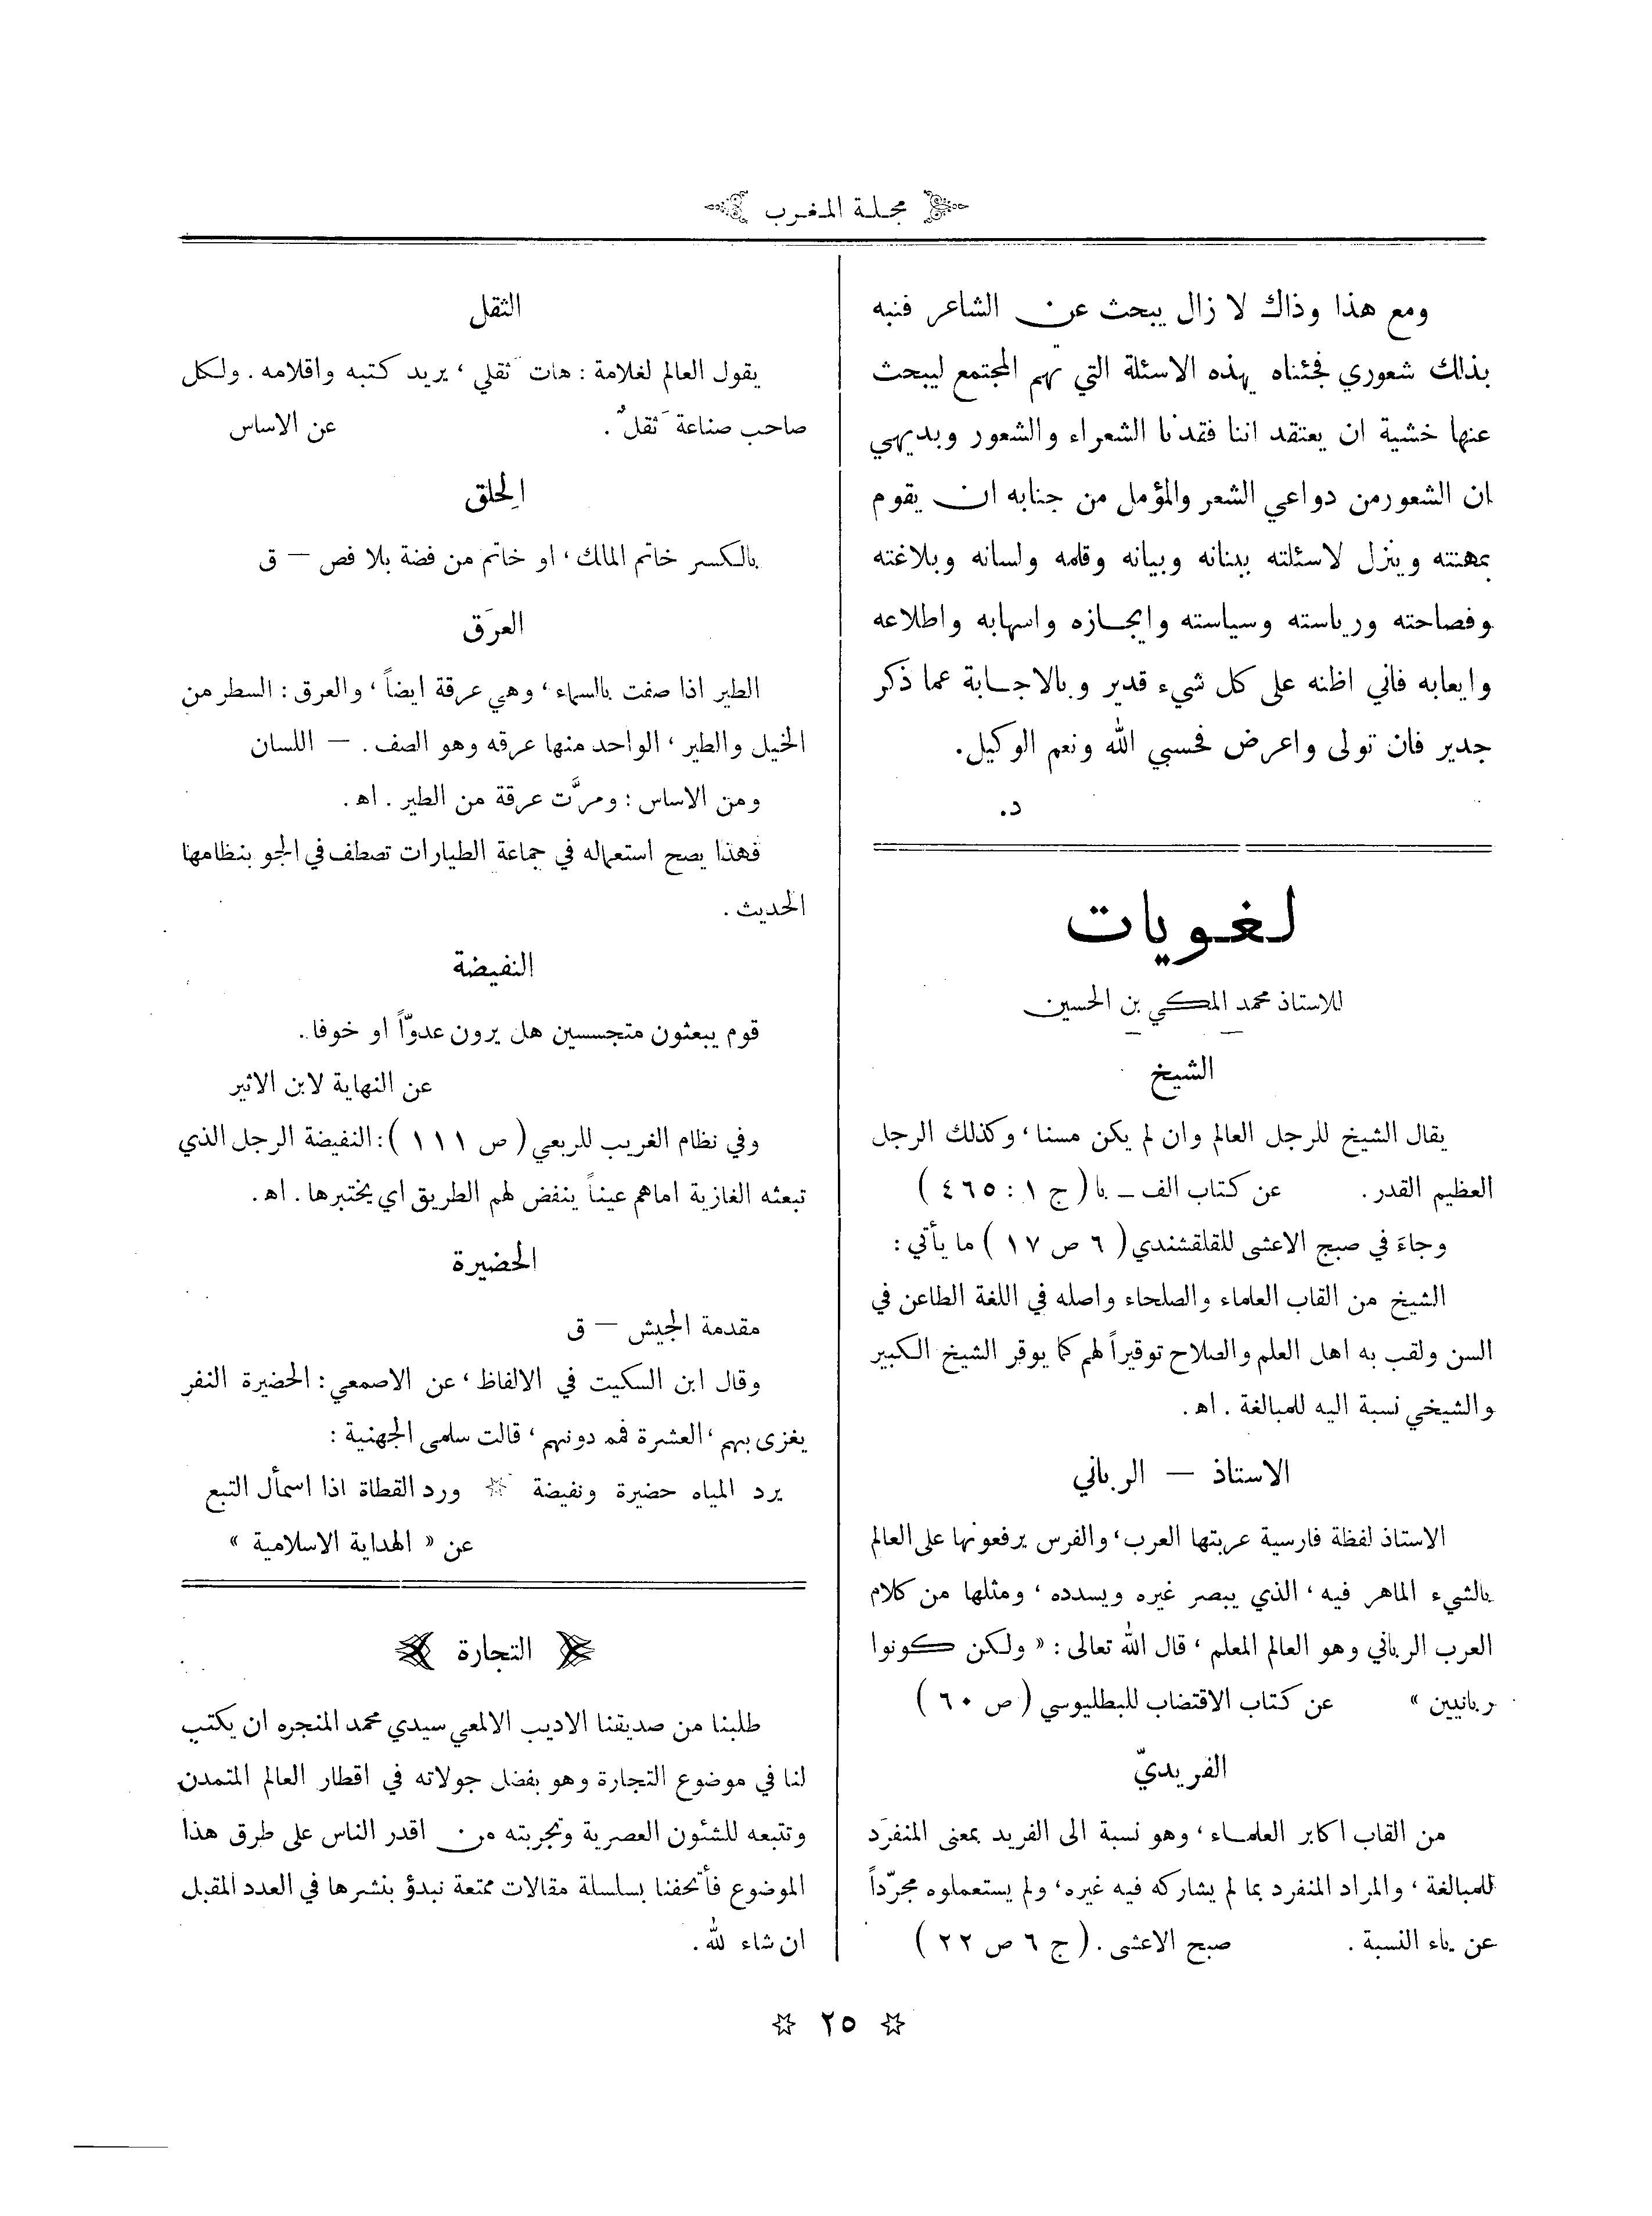 مجلة المغرب
ومع هذا وذاك لا زال يبحث عن الشاعر فنبه
بذلك شعوري فجئناه بهذه الاسئلة التي تهم المجتمع ليبحث
عنها خشية ان يعتقد اننا فقدنا الشعراء والشعور وبديهي
ان الشعورمن دواعي الشعر والمؤمل من جنابه ان يقوم
بمهنته وينزل لاسئلته ببنانه وبيانه وقلمه ولسانه وبلاغته
وفصاحته ورياسته وسياسته وايجازه واسهابه واطلاعه
وايعابه فاني اظنه على كل شيء قدير وبالاجابة عما ذكر
جدير فان تولى واعرض فحسبي الله ونعم الوكيل.
د.
لغويات
للاستاذ محمد المكي بن الحسين
الشيخ
يقال الشيخ للرجل العالم وان لم يكن مسنا، وكذلك الرجل
العظيم القدر. عن كتاب الف ــ با (ج ١ : ٤٦٥)
وجاءَ في صبح الاعشى للقلقشندي (٦ ص ١٧) ما يأتي:
الشيخ من القاب العلماء والصلحاء واصله في اللغة الطاعن في
السن ولقب به اهل العلم والصلاح توقيراً لهم كما يوقر الشيخ الكبير
والشيخي نسبة اليه للمبالغة. اه.
الاستاذ — الرباني
الاستاذ لفظة فارسية عربتها العرب، والفرس يرفعونها على العالم
بالشيء الماهر فيه، الذي يبصر غيره ويسدده، ومثلها من كلام
العرب الرباني وهو العالم المعلم، قال الله تعالى: « ولكن كونوا
ربانيين » عن كتاب الاقتضاب للبطليوسي (ص ٦٠)
الفريديّ
من القاب اكابر العلماء، وهو نسبة الى الفريد بمعنى المنفرَد
للمبالغة، والمراد المنفرد بما لم يشاركه فيه غيره، ولم يستعملوه مجرّداً
عن ياء النسبة. صبح الاعشى. (ج ٦ ص ٢٢)
الثقل
يقول العالم لغلامة: هات ثَقلي، يريد كتبه واقلامه. ولكل
صاحب صناعة ثَقلٌ. عن الاساس
الحِلق
بالكسر خاتم الملك، او خاتم من فضة بلا فص — ق
العرَق
الطير اذا صفت بالسماء، وهي عرقة ايضاً، والعرق: السطر من
الخيل والطير، الواحد منها عرقه وهو الصف. — اللسان
ومن الاساس: ومرَّت عرقة من الطير. اه.
فهذا يصح استعماله في جماعة الطيارات تصطف في الجو بنظامها
الحديث.
النفيضة
قوم يبعثون متجسسين هل يرون عدوّاً او خوفا.
عن النهاية لابن الاثير
وفي نظام الغريب للربعي (ص ١١١): النفيضة الرجل الذي
تبعثه الغازية امامهم عيناً ينفض لهم الطريق اي يختبرها. اه.
الحضيرة
مقدمة الجيش — ق
وقال ابن السكيت في الالفاظ، عن الاصمعي: الحضيرة النفر
يغزى بهم، العشرة فمه دونهم، قالت سلمى الجهنية:
يرد المياه حضيرة ونفيضة ☆ ورد القطاة اذا اسمأل التبع
عن « الهداية الاسلامية »
التجارة
طلبنا من صديقنا الاديب الالمعي سيدي محمد المنجره ان يكتب
لنا في موضوع التجارة وهو بفضل جولاته في اقطار العالم المتمدن
وتتبعه للشئون العصرية وتجربته من اقدر الناس على طرق هذا
الموضوع فأتحفنا بسلسلة مقالات ممتعة نبدؤ بنشرها في العدد المقبل
ان شاء لله.
☆ ٢٥ ☆